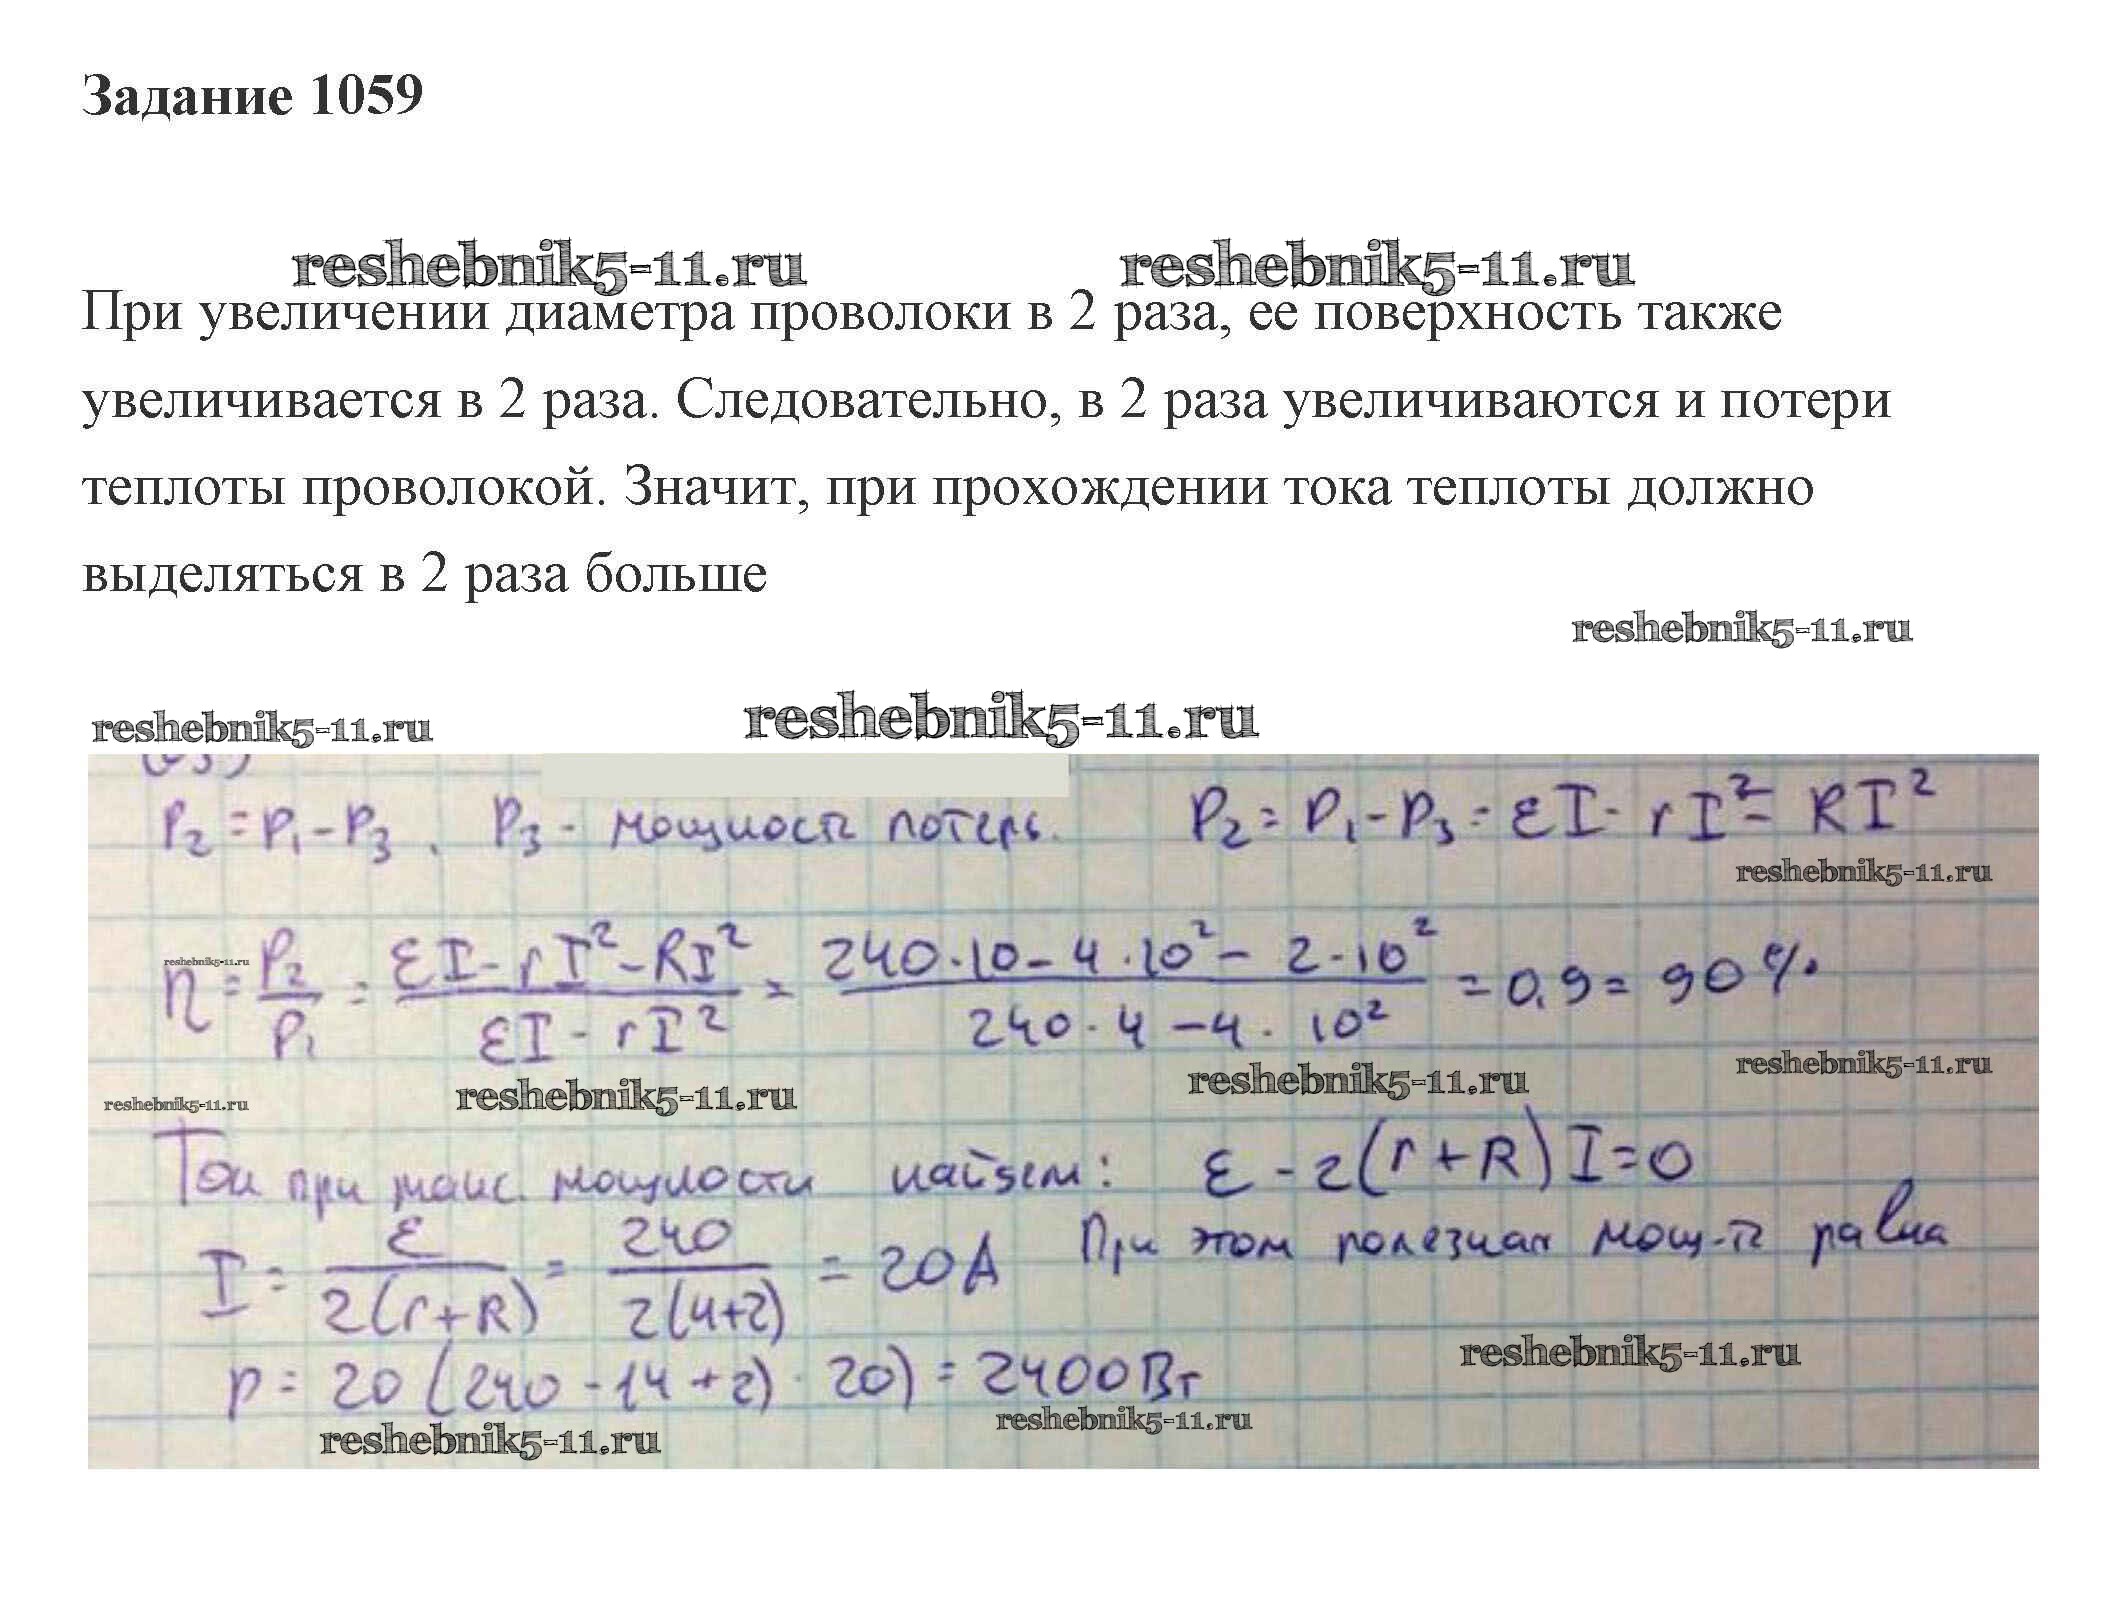 Задание 1059
reshebnik5-11.ru reshebnik5-11.ru
При увеличении диаметра проволоки в 2 раза, ее поверхность также
увеличивается в 2 раза. Следовательно, в 2 раза увеличиваются и потери
теплоты проволокой. Значит, при прохождении тока теплоты должно
выделяться в 2 раза больше
reshebnik5-11.ru
reshebnik5-11.ru reshebnik5-11.ru
P₂ = P₁ - P₃, P₃ - мощность потерь. P₂ = P₁ - P₃ = εI - rI² = RI²
reshebnik5-11.ru
η = P₂/P₁ = (εI - rI² - RI²)/(εI - rI²) = (240·10 - 4·10² - 2·10²)/(240·4 - 4·10²) = 0,9 = 90%
reshebnik5-11.ru
reshebnik5-11.ru reshebnik5-11.ru reshebnik5-11.ru reshebnik5-11.ru
Ток при макс. мощности найдем: ε - 2(r+R)I = 0
I = ε/(2(r+R)) = 240/(2(4+2)) = 20A При этом полезная мощ-ть равна
reshebnik5-11.ru
P = 20(240 - 14+2)·20) = 2400Вт
reshebnik5-11.ru reshebnik5-11.ru